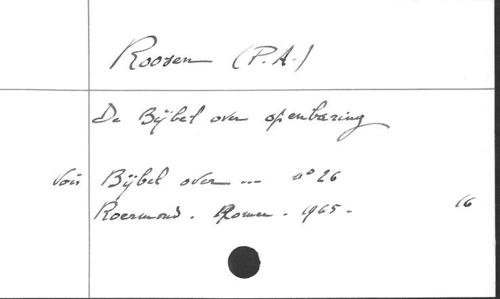 Roosen (P.A.)
De Bijbel over openbaring
Voir Bijbel over ... n° 26
Roermond. Romen. 1965. 16